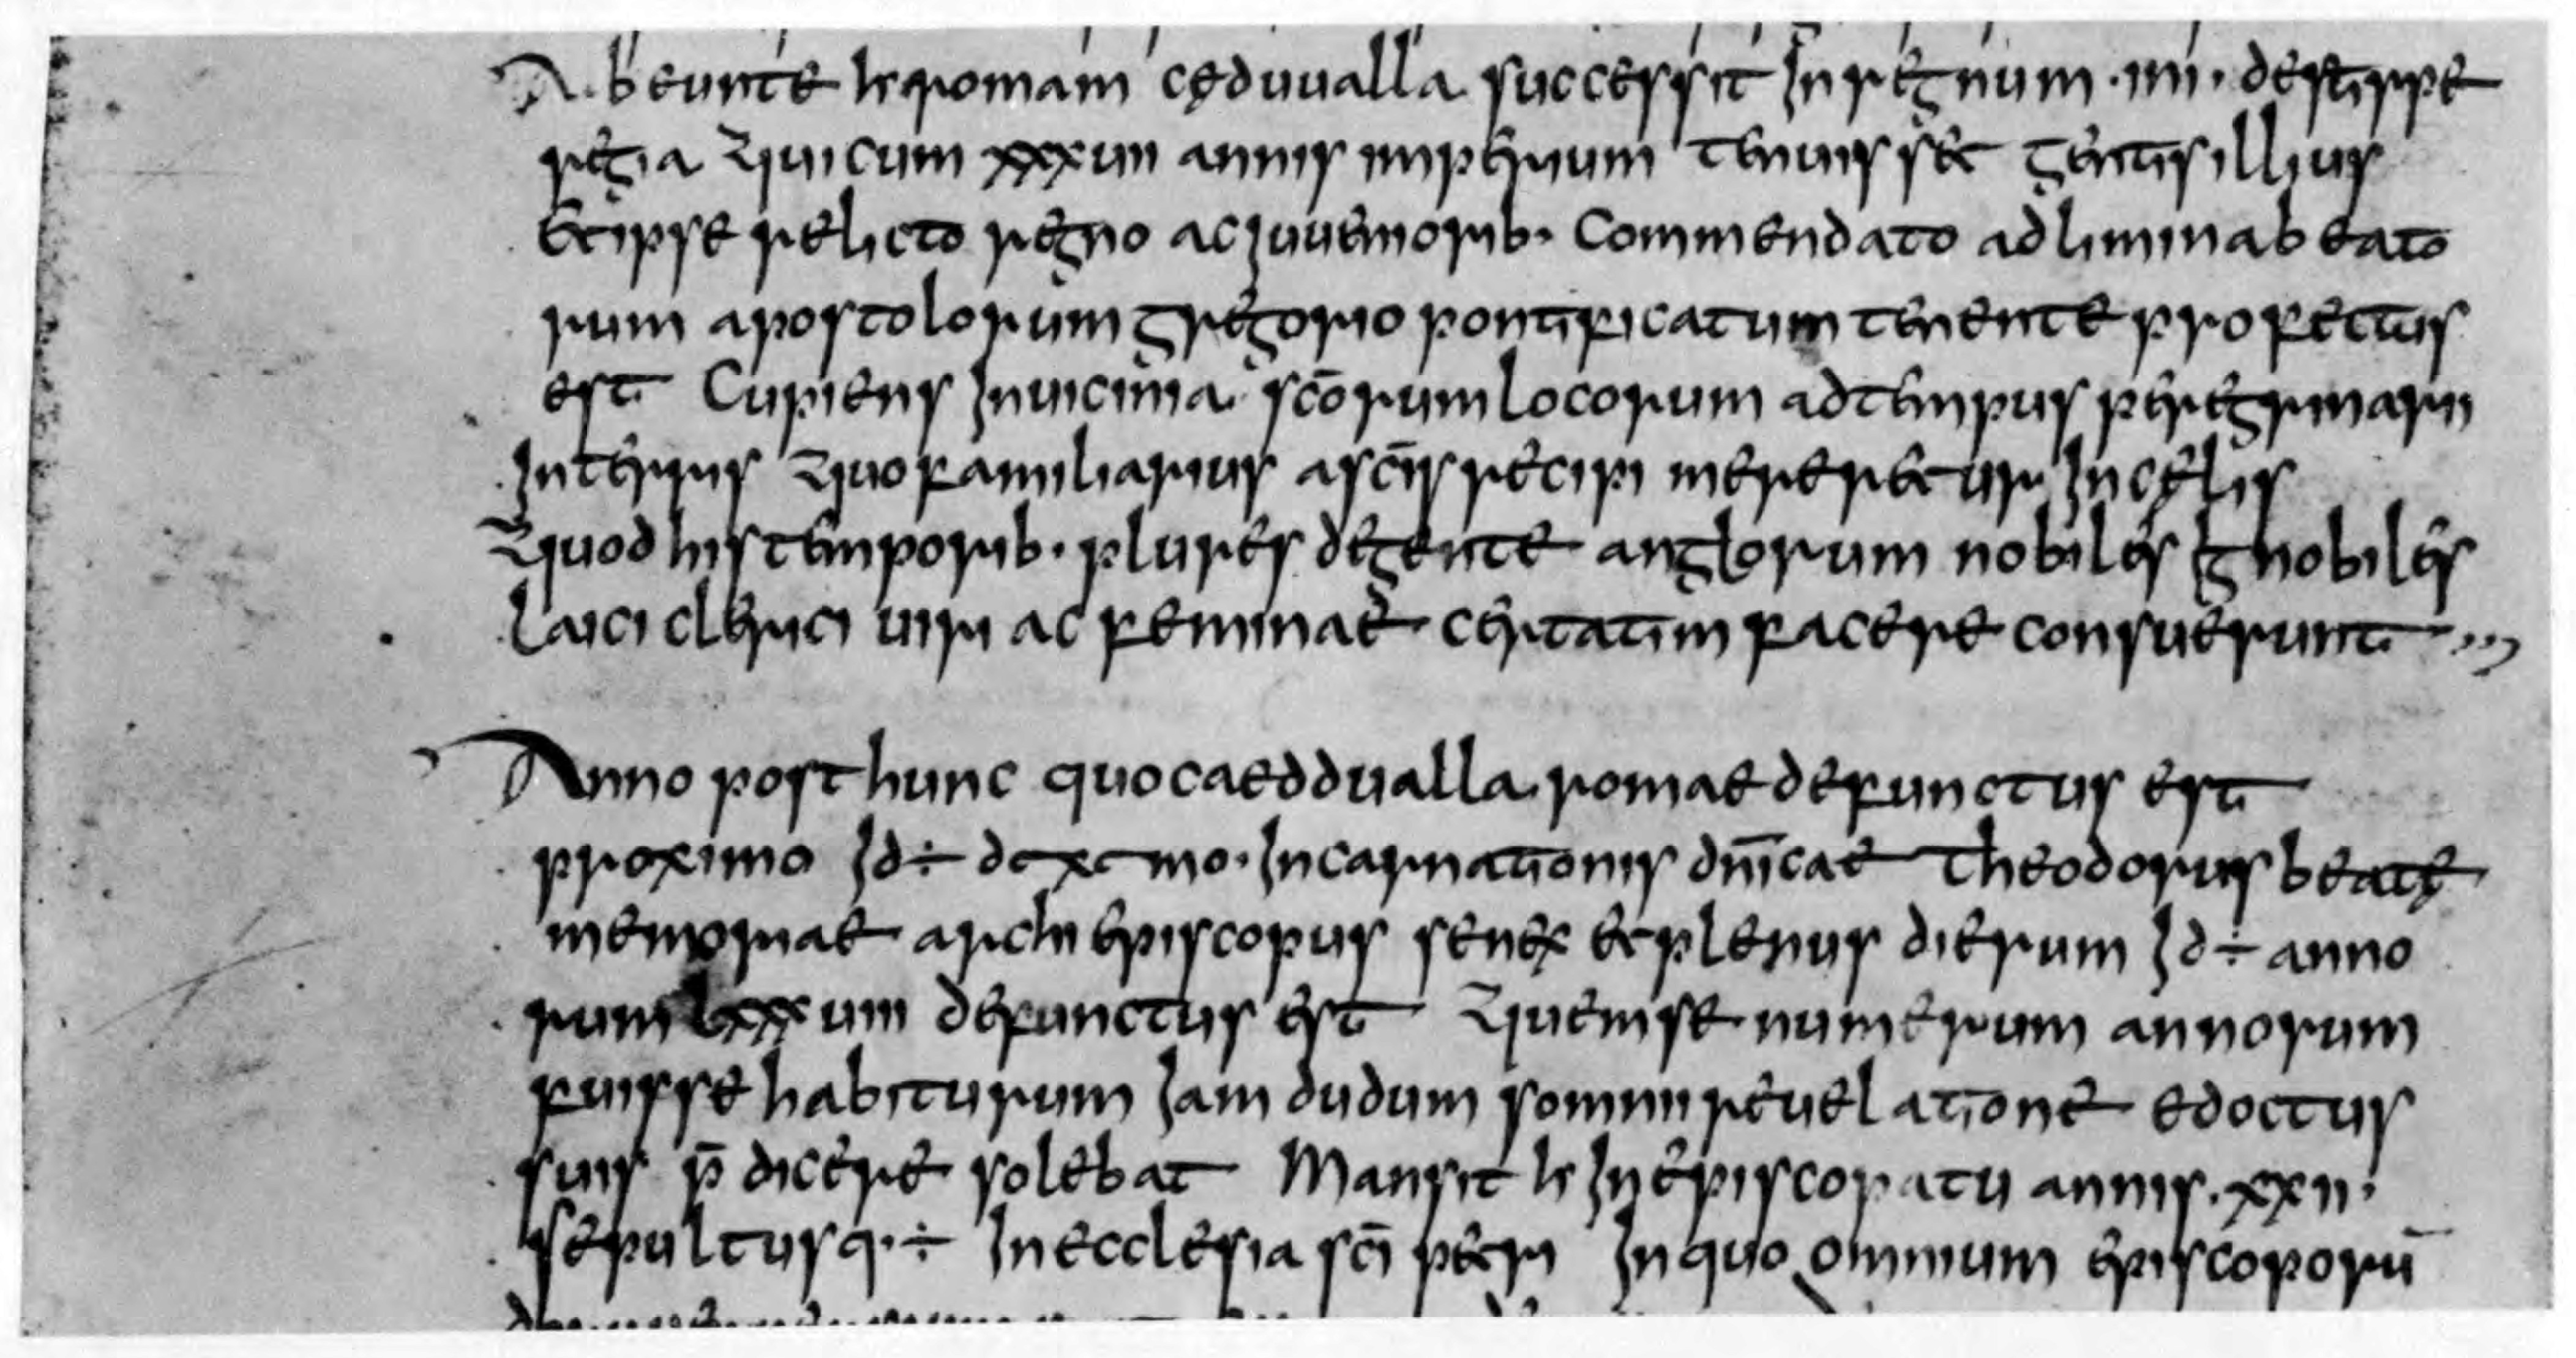 Abeunte hr romam ceduualla successit In regnum .ini. de stirpe
regia Qui cum xxxuii annis imperium tenuisset gentis illius
et ipse relicto regno ac Iuuenorib. Commendato ad limina beato
rum apostolorum gregorio pontificatum tenente profectus
est Cupiens In uicinia scōrum locorum ad tempus peregrinari
In terris Quo familiarius a scīs recipi mereretur In celis
Quod his temporib. plures de gente anglorum nobiles Ignobiles
Laici clerici uiri ac feminae certatim facere consuerunt
Anno post hunc quo caeddualla romae defunctus est
proximo Id ÷ dcxcmo. Incarnationis dnīcae Theodorus beatę
memoriae archiepiscopus senex et plenus dierum Id ÷ anno
rum lxxxuiii defunctus est Quem se numerum annorum
fuisse habiturum Iam dudum somnii reuelatione edoctus
suis p̄dicere solebat Mansit hr In episcopatu annis. xxii.
sepultusq. ÷ In ecclesia scī petri In quo omnium episcoporū